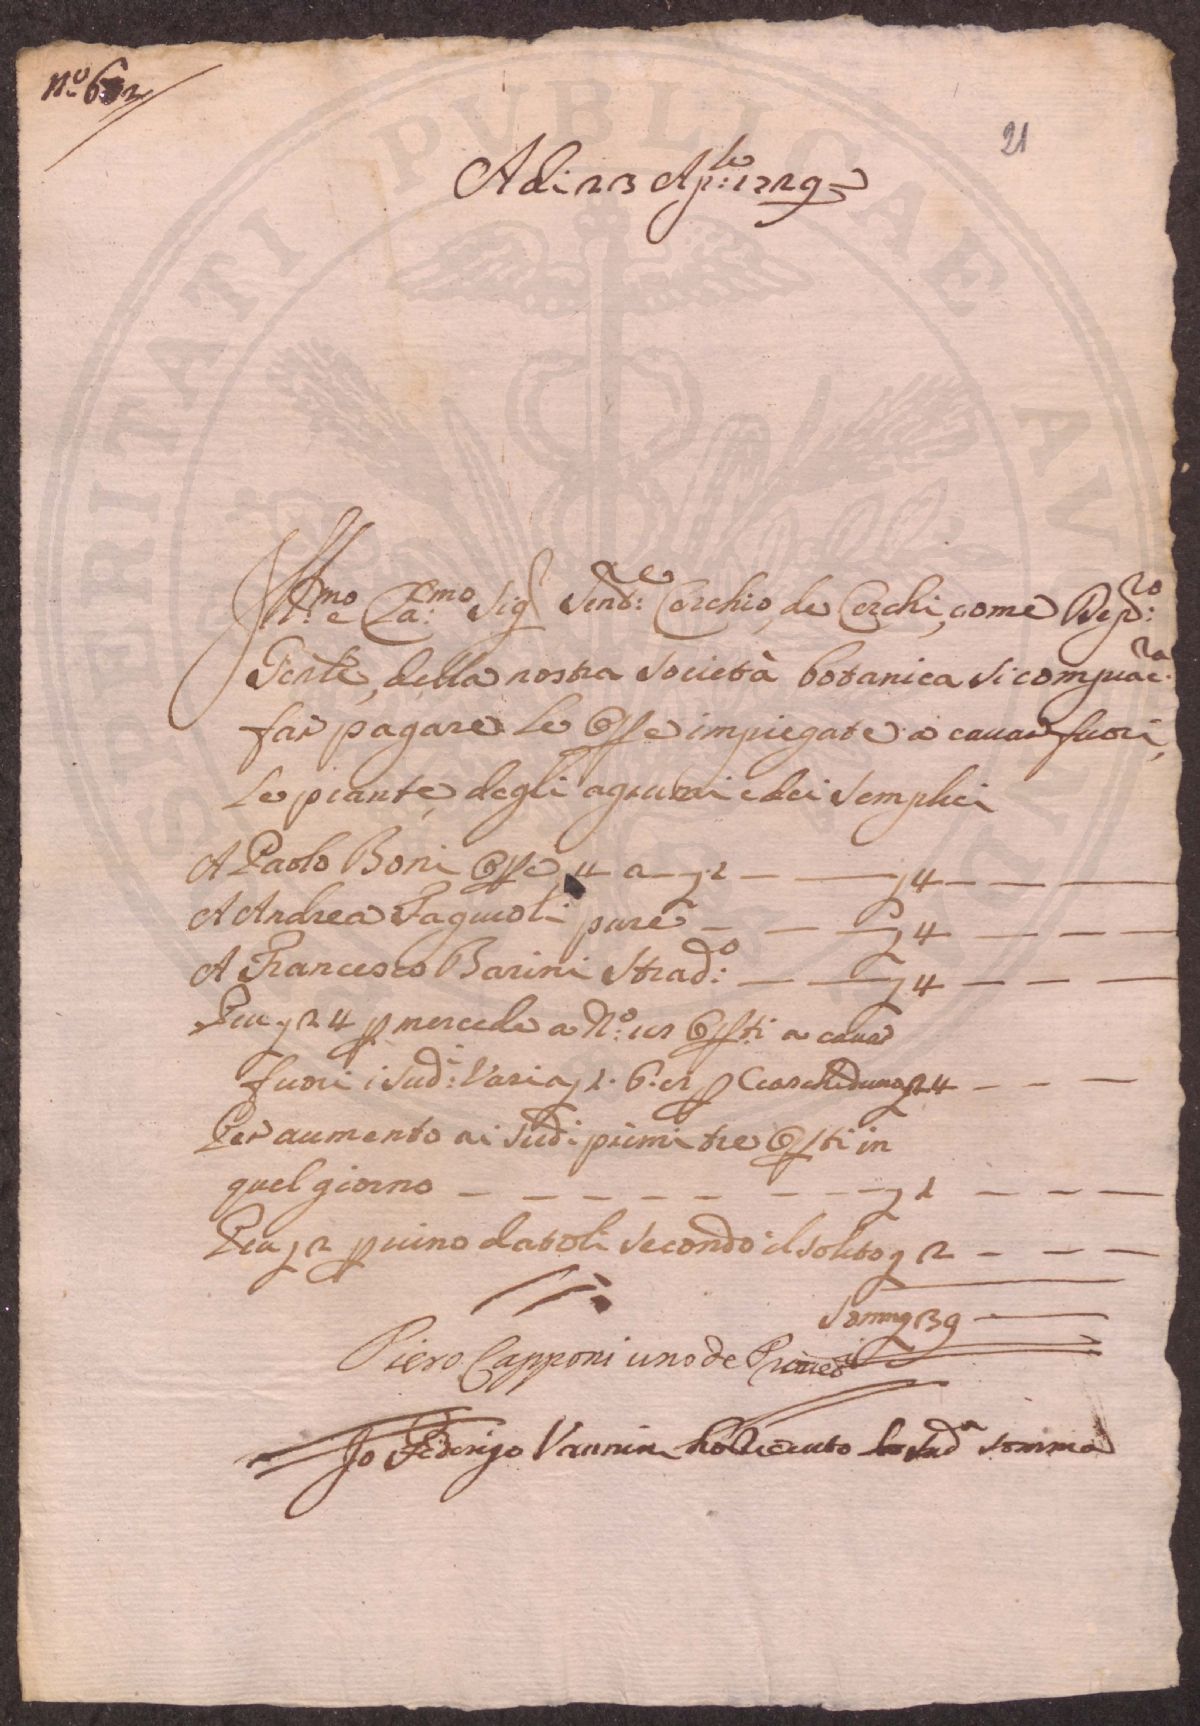 N.o 632
21
A di 23 Ap:le 1729
Ill:mo e Cla:mo Sig.r Senã:re Cerchio de Cerchi, come Dep:to
Perte, della nostra società botanica si compiac:ra
far pagare le Opre impiegate a cavar fuori,
le piante, degli agrumi e dei semplici
A Paolo Boni Opre 4 a — 1 — — 4 — — —
A Andrea Fagiuoli pure — — — 4 — — —
A Francesco Barini Strad:o — — 4 — — —
Piu 24 p mercede a N:o Opti a cavar
fuori i sud:i Vasi a 1. 6. 24 — — —
Per aumento ai sudi primi tre Opti in
quel giorno — — — — — — — — 1 — — —
Piu 2 p vino datoli secondo il solito 2 — — —
Somm 39 —
Piero Capponi uno de Proved.i
Io Federigo Vannini ho riceuto la sud.a somma